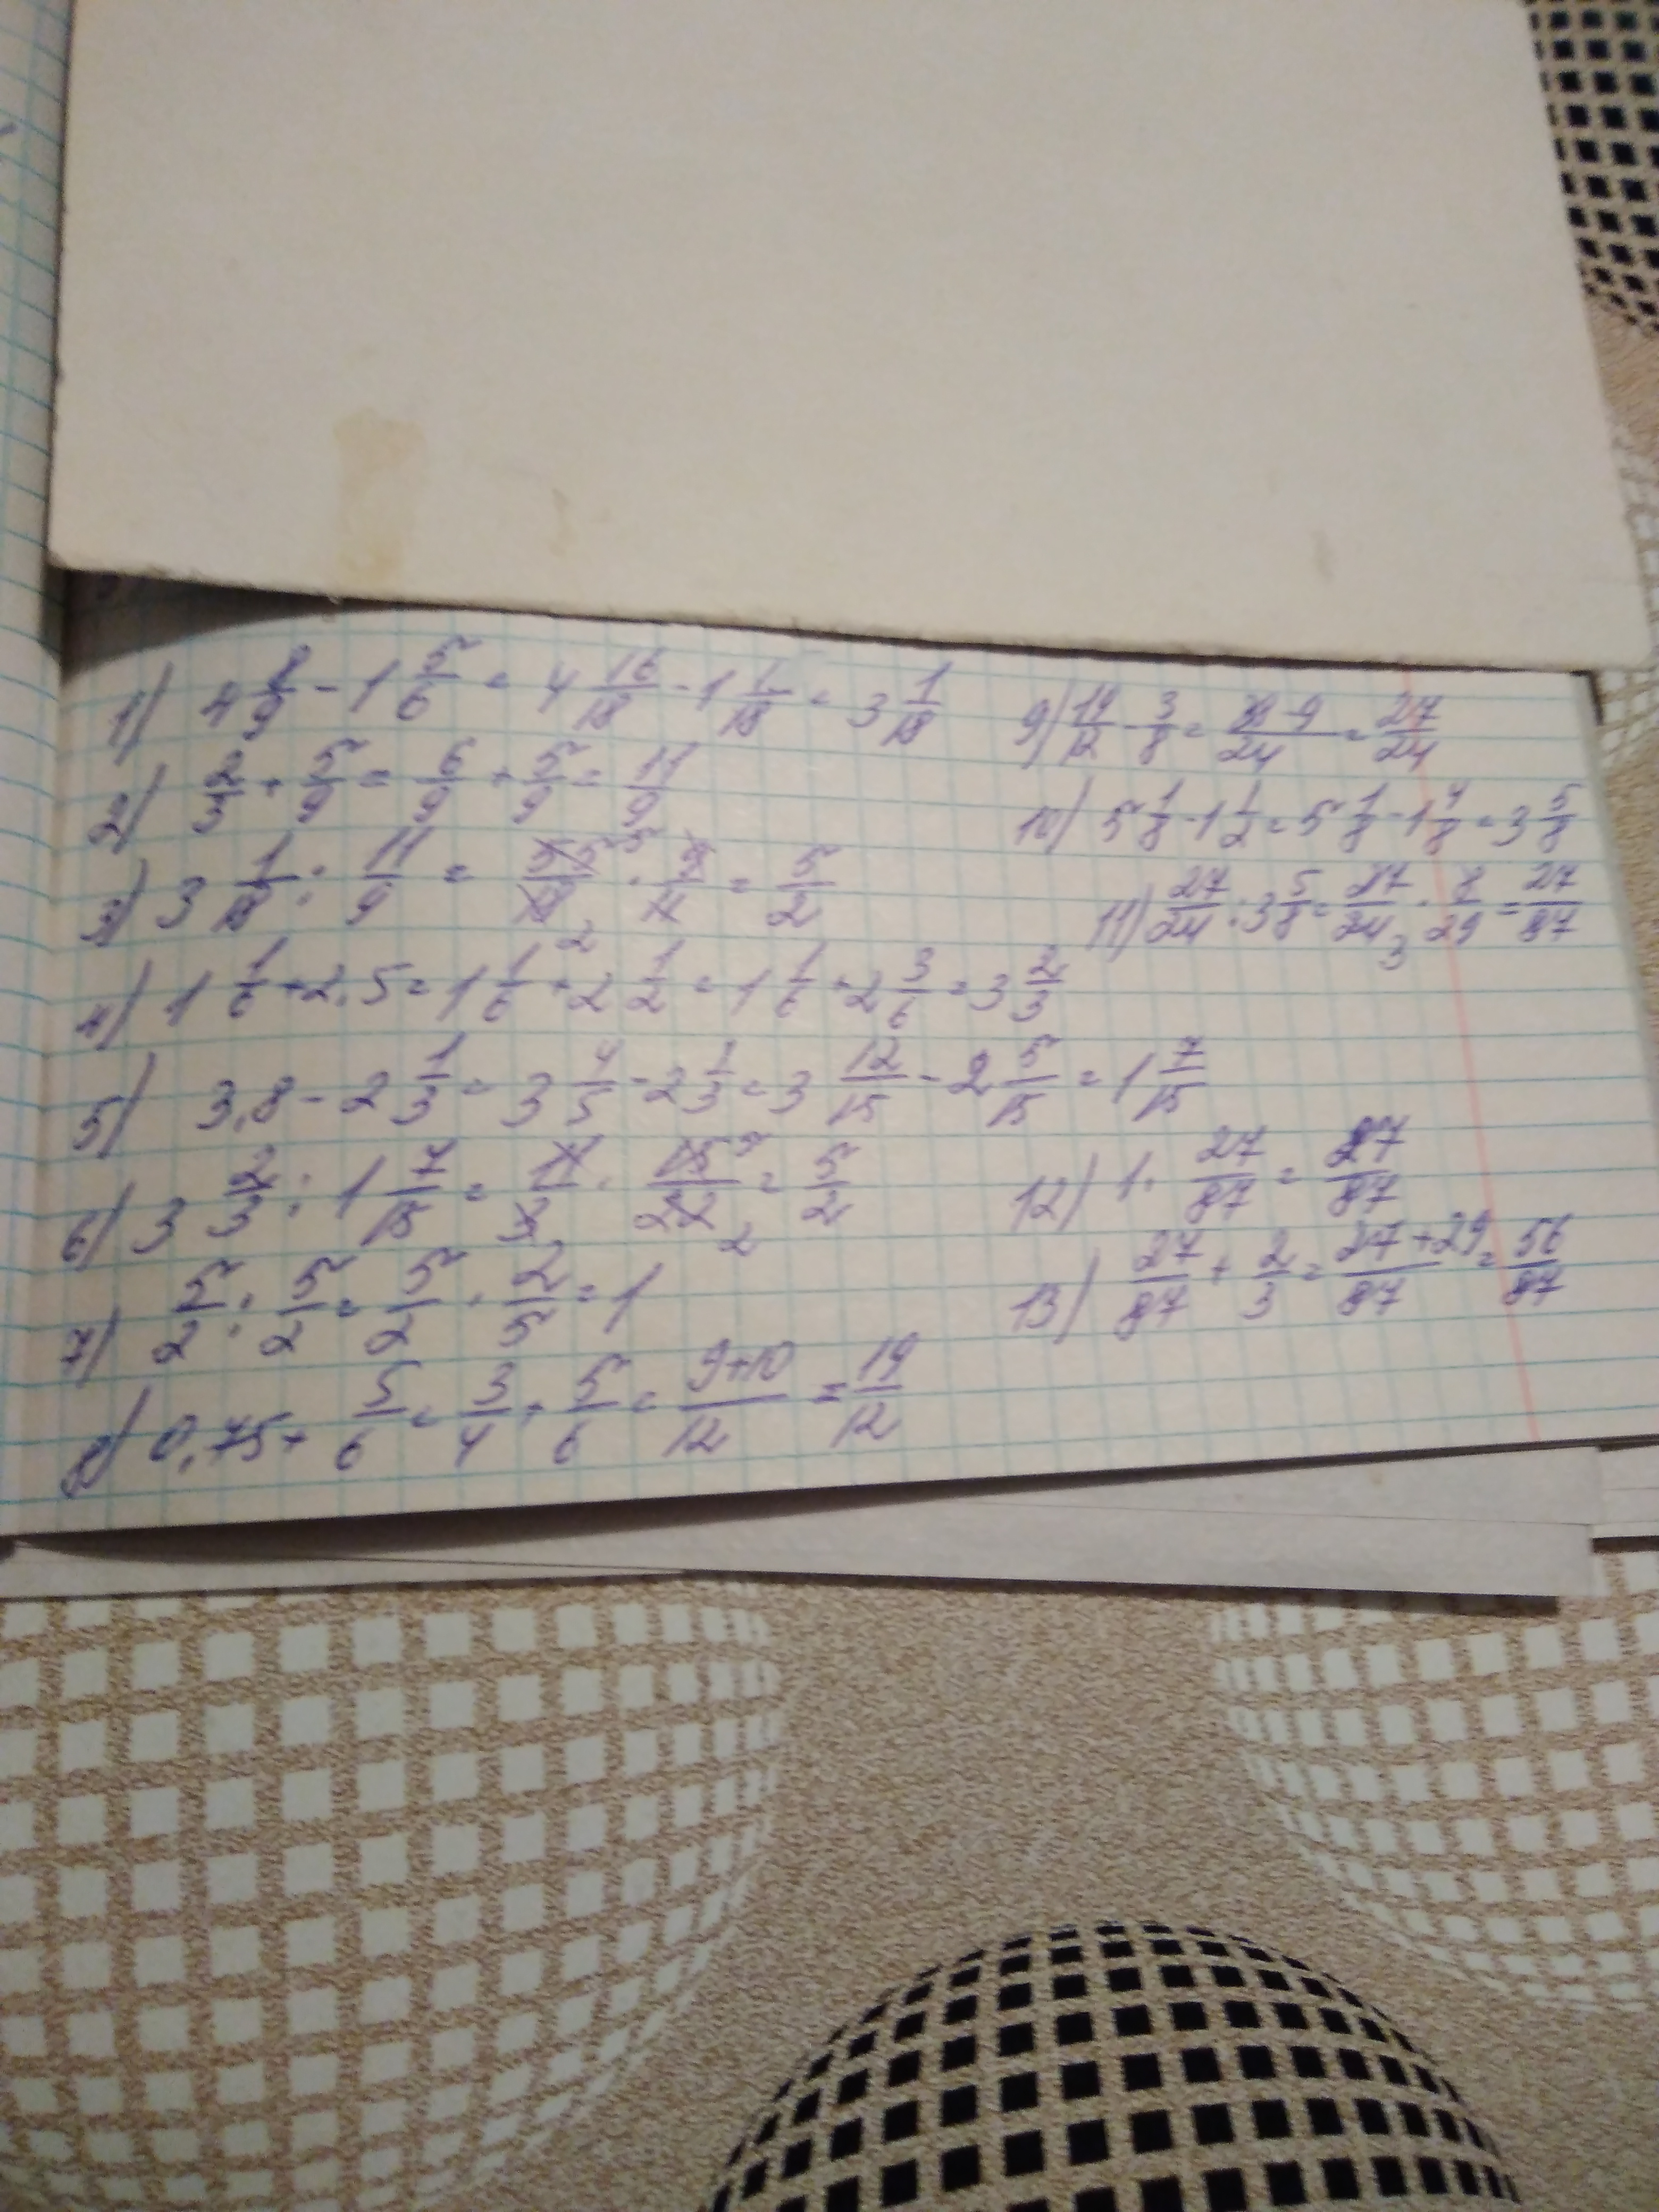 1) 4 8/9 - 1 5/6 = 4 16/18 - 1 1/18 = 3 1/18
2) 2/3 + 5/9 = 6/9 + 5/9 = 11/9
3) 3 1/18 : 11/9 = 55/18 · 9/11 = 5/2
4) 1 1/6 + 2,5 = 1 1/6 + 2 1/2 = 1 1/6 + 2 3/6 = 3 2/3
5) 3,8 - 2 1/3 = 3 4/5 - 2 1/3 = 3 12/15 - 2 5/15 = 1 7/15
6) 3 2/3 : 1 7/15 = 11/3 · 15/22 = 5/2
7) 5/2 : 5/2 = 5/2 · 2/5 = 1
8) 0,75 + 5/6 = 3/4 + 5/6 = 9+10/12 = 19/12
9) 19/12 - 3/8 = -9/24 = 27/24
10) 5 1/8 - 1 1/2 = 5 1/8 - 1 4/8 = 3 5/8
11) 27/24 : 3 5/8 = 27/24 · 8/29 = 27/87
12) 1 · 27/87 = 27/87
13) 27/87 + 2/3 = 27+29/87 = 56/87